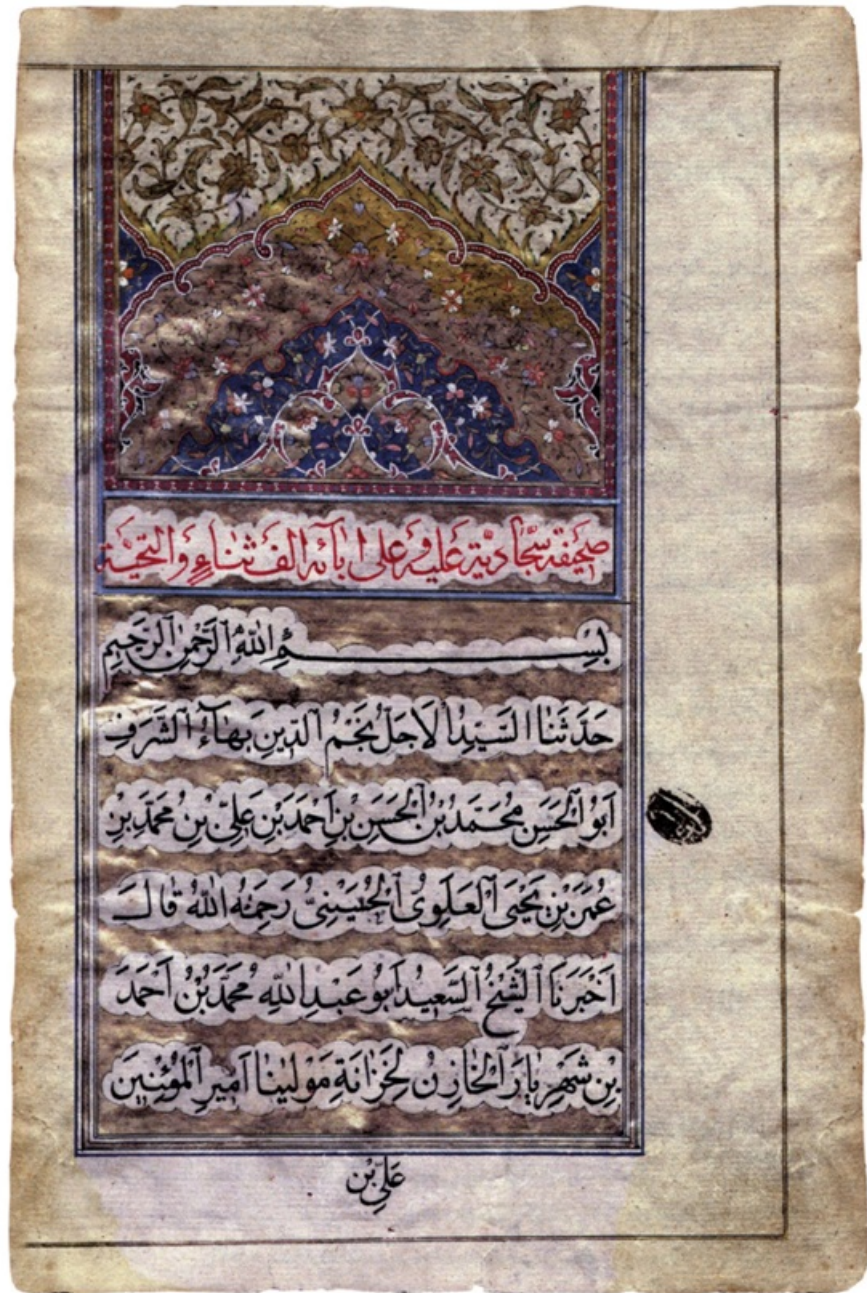 صحیفه سجّادیّة علیه و علی اٰبآئه الف ثنآءٍ و التحیّة
بِسْمِ اللّٰهِ الرَّحْمٰنِ الرَّحِیمِ
حَدَّثَنَا السَّیِّدُ الْاَجَلُّ نَجْمُ الدّینِ بَهآءُ الشَّرَفِ
اَبُو الْحَسَنِ مُحَمَّدُ بْنُ الْحَسَنِ بْنِ اَحْمَدَ بْنِ عَلِیِّ بْنِ مُحَمَّدِ بْنِ
عُمَرَ بْنِ یَحْیَی الْعَلَوِیُّ الْحُسَیْنِیُّ رَحِمَهُ اللّٰهُ قالَ
اَخْبَرَنَا الشَّیْخُ السَّعیدُ اَبُو عَبْدِ اللّٰهِ مُحَمَّدُ بْنُ اَحْمَدَ
بْنِ شَهْرِیٰارَ الْخٰازِنُ لِخَزٰانَةِ مَوْلٰینٰا اَمیرِ الْمُؤْمِنینَ
عَلِیِّ بْنِ